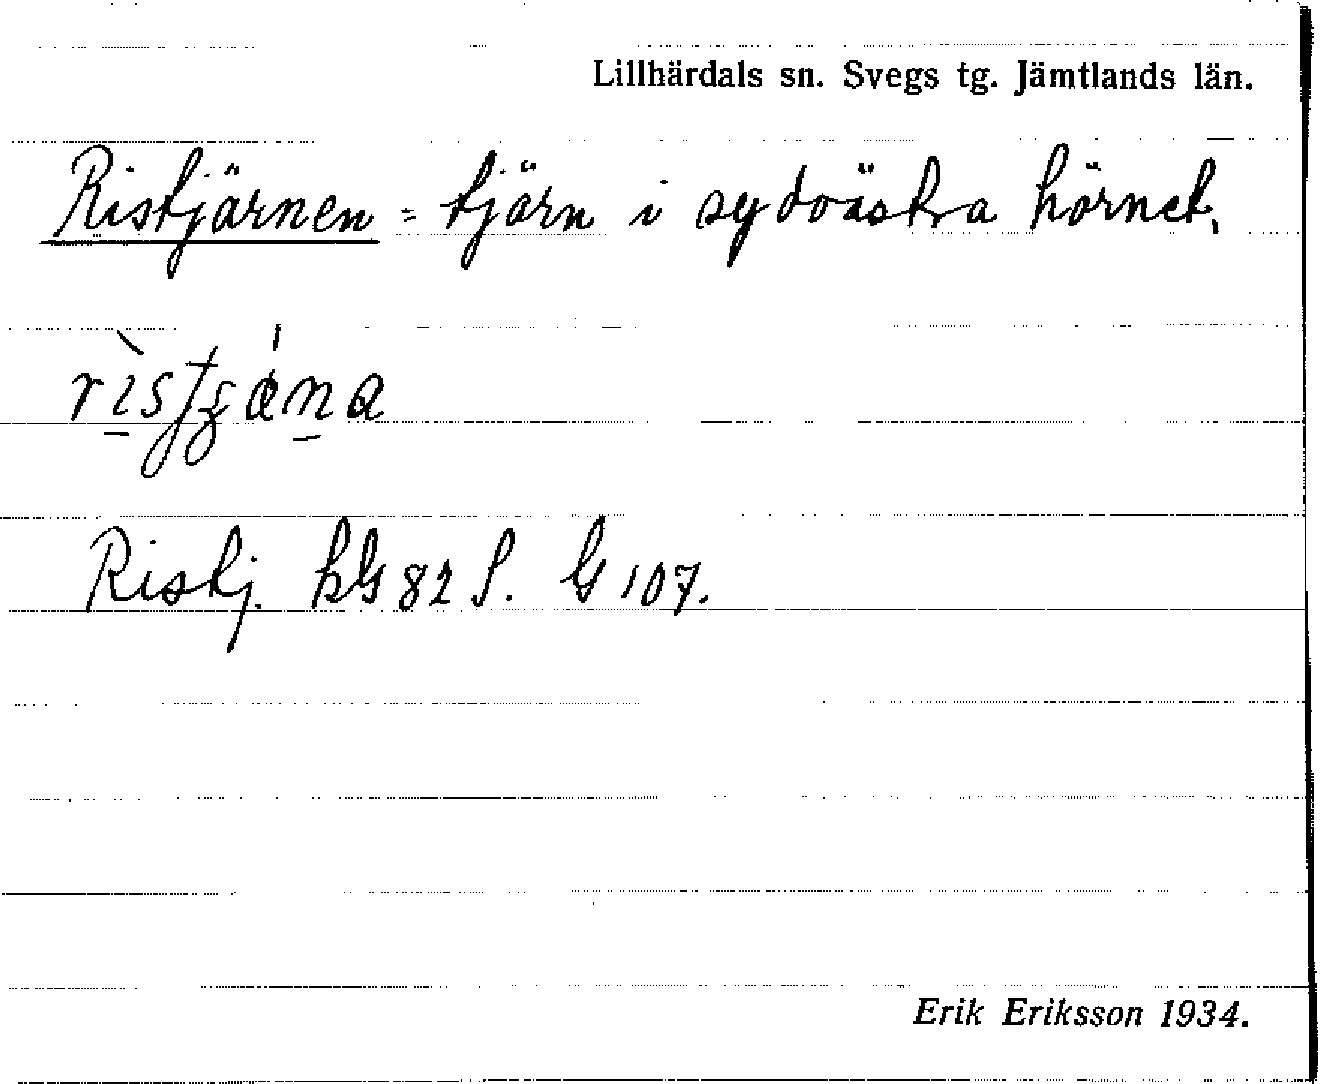 Lillhärdals sn. Svegs tg. Jämtlands län.
Ristjärnen = tjärn i sydvästra hörnet.
Ristj. kG 82 S. G 107.
Erik Eriksson 1934.